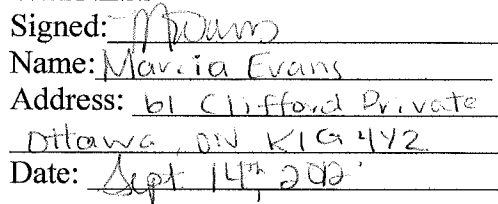 Signed: MEvans
Name: Marcia Evans
Address: 61 Clifford Private
Ottawa, ON K1G 4Y2
Date: Sept 14th, 2012